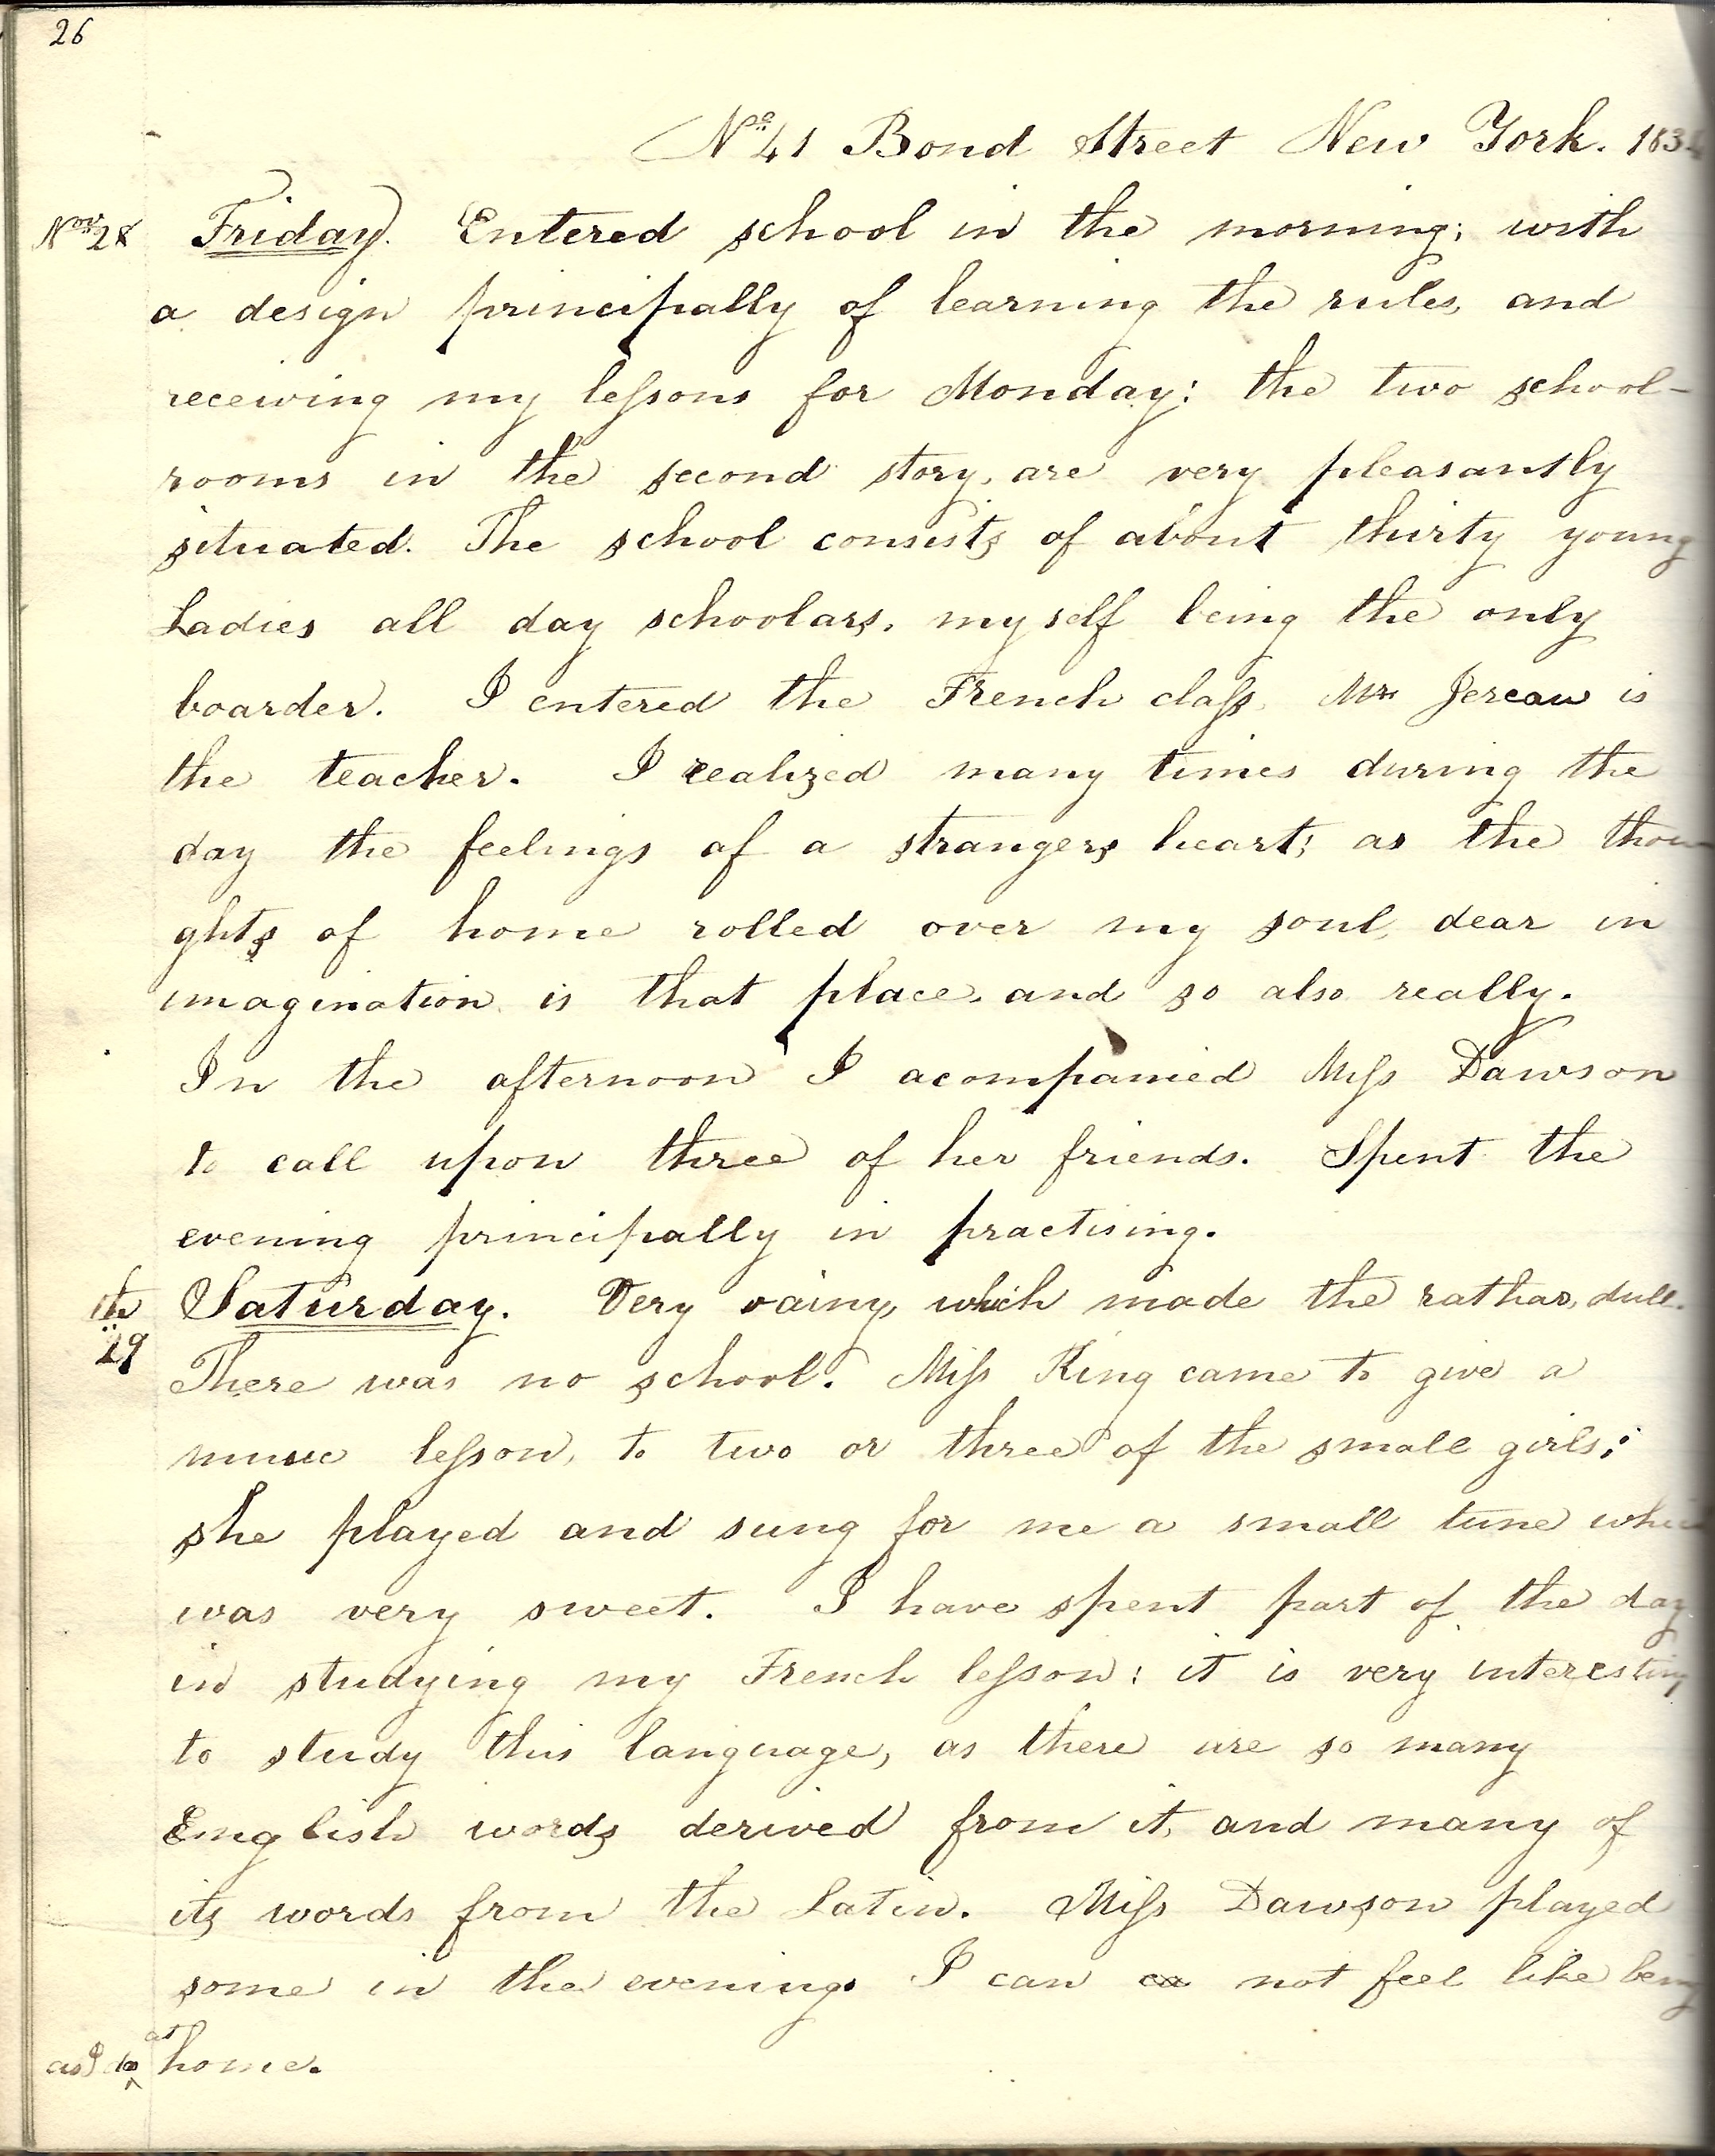 26
No 41 Bond Street New York. 183
Nov 28 Friday. Entered school in the morning; with
a design principally of learning the rules, and
receiving my lessons for Monday; the two school-
rooms in the second story, are very pleasantly
situated. The school consists of about thirty young
Ladies all day schoolars, myself being the only
boarder. I entered the French class, Mr Jereau is
the teacher. I realized many times during the
day the feelings of a strangers heart; as the thou
ghts of home rolled over my soul, dear in
imagination is that place, and so also really.
In the afternoon I acompanied Miss Dawson
to call upon three of her friends. Spent the
evening principally in practising.
Saturday. Very rainy, which made the rathar, dull.
29 There was no school. Miss King came to give a
music lesson, to two or three of the small girls;
she played and sung for me a small tune whi
was very sweet. I have spent part of the day
in studying my French lesson; it is very interesting
to study this language, as there are so many
English words derived from it, and many of
its words from the Latin. Miss Dawson played
some in the evening. I can ca not feel like being
as I do at home.